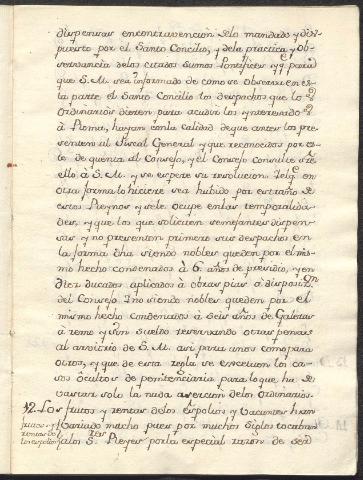 dispensar encontravencion delo mandado y dis-
puesto por el Santo Concilio, y dela practica y ob-
servancia delos citados Sumos Pontifices y q.e para
que S. M. sea informado de como se observa en es-
ta parte el Santo Concilio los despachos que los
Ordinarios dieren para acudir los interesados
à Roma, hayan con la calidad de que antes los pre-
senten al Fiscal General y que reconocidos por es-
te de quenta al Consejo, y el Consejo consulte
ello à S. M. y se espere su resolucion. Telq.e en
otra forma lo hiciere sea habido por estraño de
estos Reynos y sele ocupe enlas temporalida-
des, y que los que soliciten semejantes dispen-
sas y no presenten primero sus despachos en
la forma dha siendo nobles queden por el mis-
mo hecho condenados à 6 años de presidio, y en
Diez ducados aplicados à obras pias à disposi.on
del Consejo I no siendo nobles queden por el
mismo hecho condenados à Seis años de Galeras
à remo y sin sueldo reservando otras penas
al arvitrio de S. M. asi para unos como para
otros, y que de esta regla se escetuen los ca-
sos ocultos de penitenciaria para lo que ha de
vastar solo la nuda asercion delos Ordinarios.
12. Los frutos y rentas delos Espolios y Vacantes han
frutos y rentas de los espolios
variado mucho pues por muchos Siglos tocaban
alos S.res Reyes por la especial razon de ser